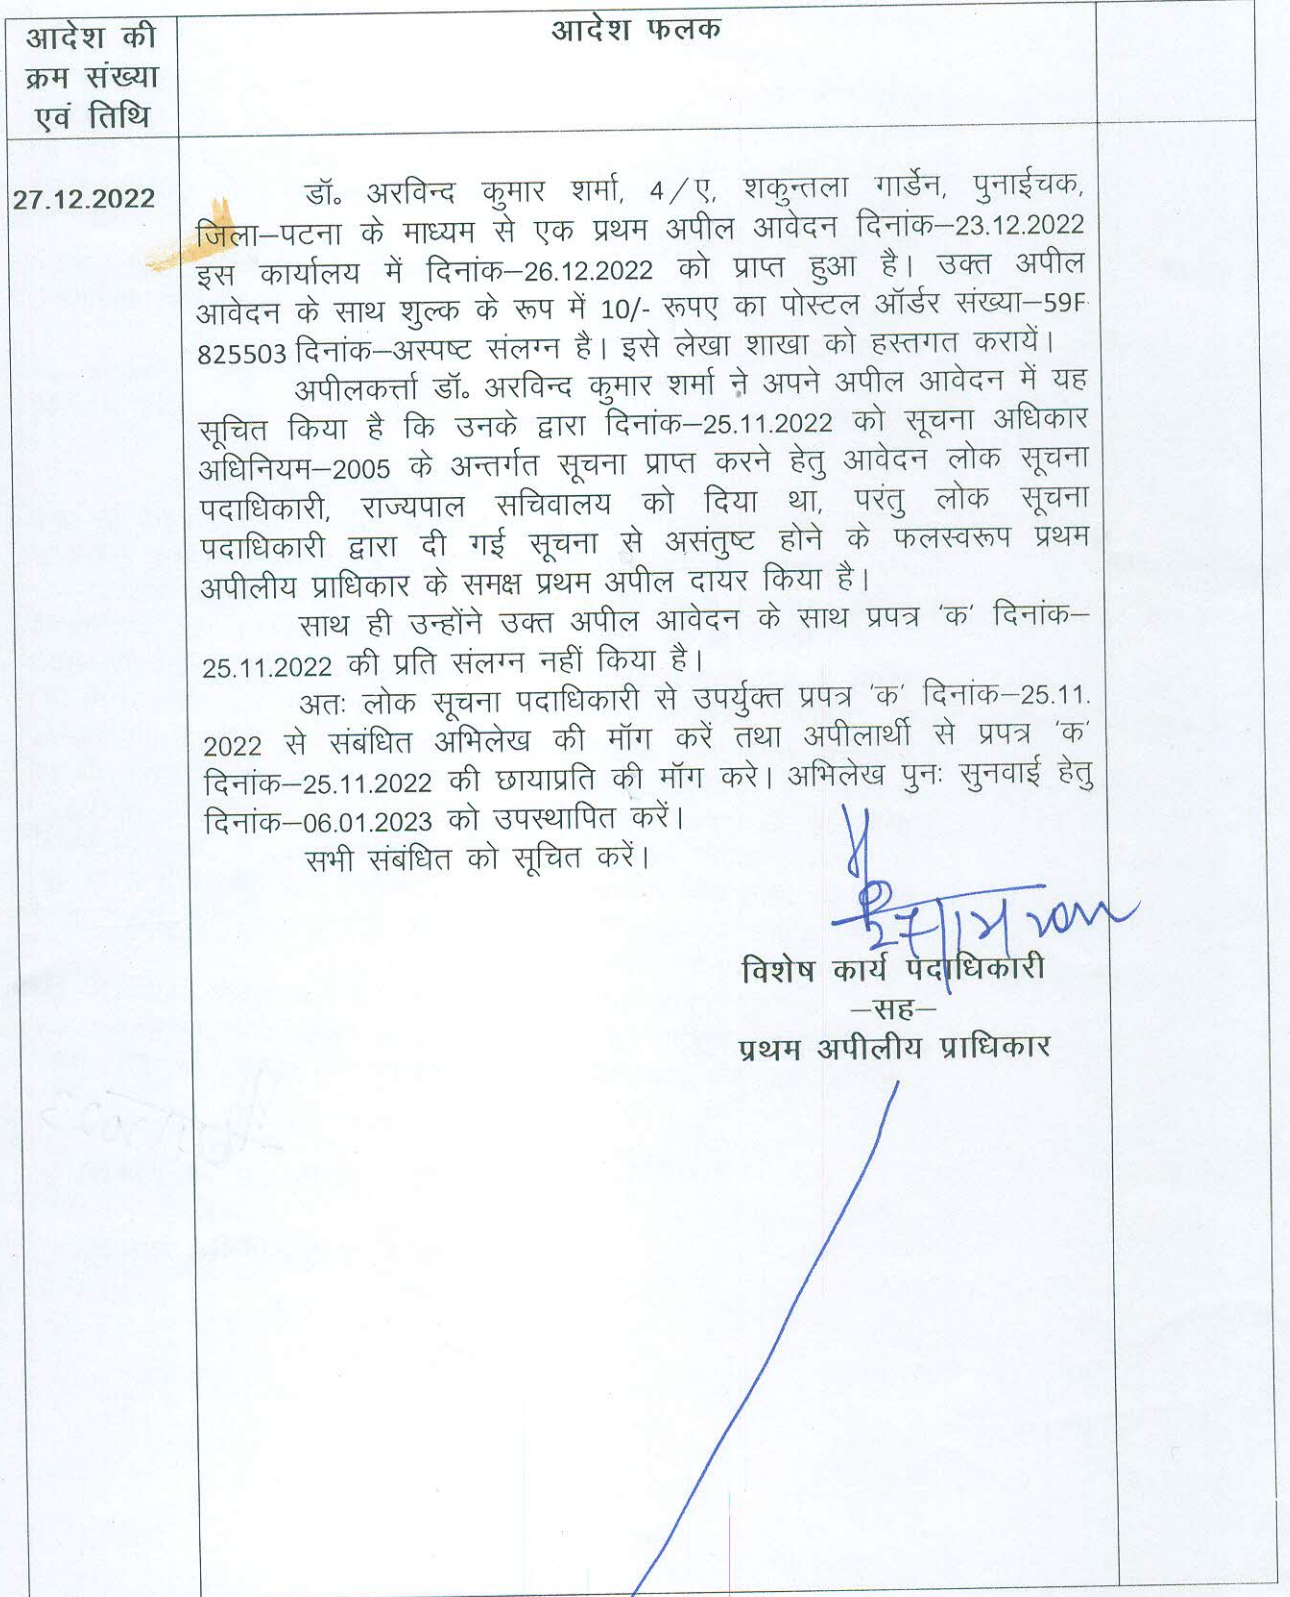 आदेश की
क्रम संख्या
एवं तिथि
आदेश फलक
27.12.2022
डॉ॰ अरविन्द कुमार शर्मा, 4/ए, शकुन्तला गार्डेन, पुनाईचक,
जिला–पटना के माध्यम से एक प्रथम अपील आवेदन दिनांक–23.12.2022
इस कार्यालय में दिनांक–26.12.2022 को प्राप्त हुआ है। उक्त अपील
आवेदन के साथ शुल्क के रूप में 10/- रूपए का पोस्टल ऑर्डर संख्या–59F
825503 दिनांक–अस्पष्ट संलग्न है। इसे लेखा शाखा को हस्तगत करायें।
अपीलकर्त्ता डॉ॰ अरविन्द कुमार शर्मा ने अपने अपील आवेदन में यह
सूचित किया है कि उनके द्वारा दिनांक–25.11.2022 को सूचना अधिकार
अधिनियम–2005 के अन्तर्गत सूचना प्राप्त करने हेतु आवेदन लोक सूचना
पदाधिकारी, राज्यपाल सचिवालय को दिया था, परंतु लोक सूचना
पदाधिकारी द्वारा दी गई सूचना से असंतुष्ट होने के फलस्वरूप प्रथम
अपीलीय प्राधिकार के समक्ष प्रथम अपील दायर किया है।
साथ ही उन्होंने उक्त अपील आवेदन के साथ प्रपत्र 'क' दिनांक–
25.11.2022 की प्रति संलग्न नहीं किया है।
अतः लोक सूचना पदाधिकारी से उपर्युक्त प्रपत्र 'क' दिनांक–25.11.
2022 से संबंधित अभिलेख की मॉग करें तथा अपीलार्थी से प्रपत्र 'क'
दिनांक–25.11.2022 की छायाप्रति की मॉग करे। अभिलेख पुनः सुनवाई हेतु
दिनांक–06.01.2023 को उपस्थापित करें।
सभी संबंधित को सूचित करें।
विशेष कार्य पदाधिकारी
–सह–
प्रथम अपीलीय प्राधिकार